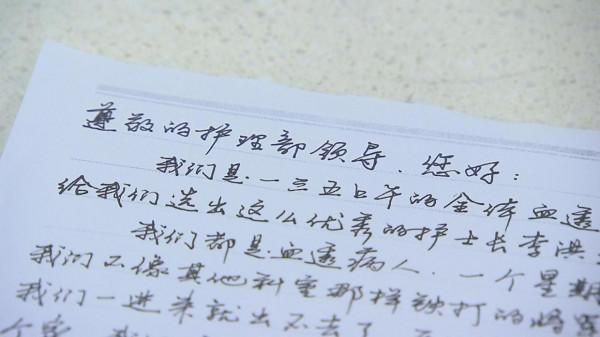 遵敬的护理部领导.您好:
我们是.一三五口午的全体血透
给我们选出这么优秀的护士长李洪
我们都是血透病人.一个星期
我们不像其他科室那样铁打的
我们一进来就出不去了